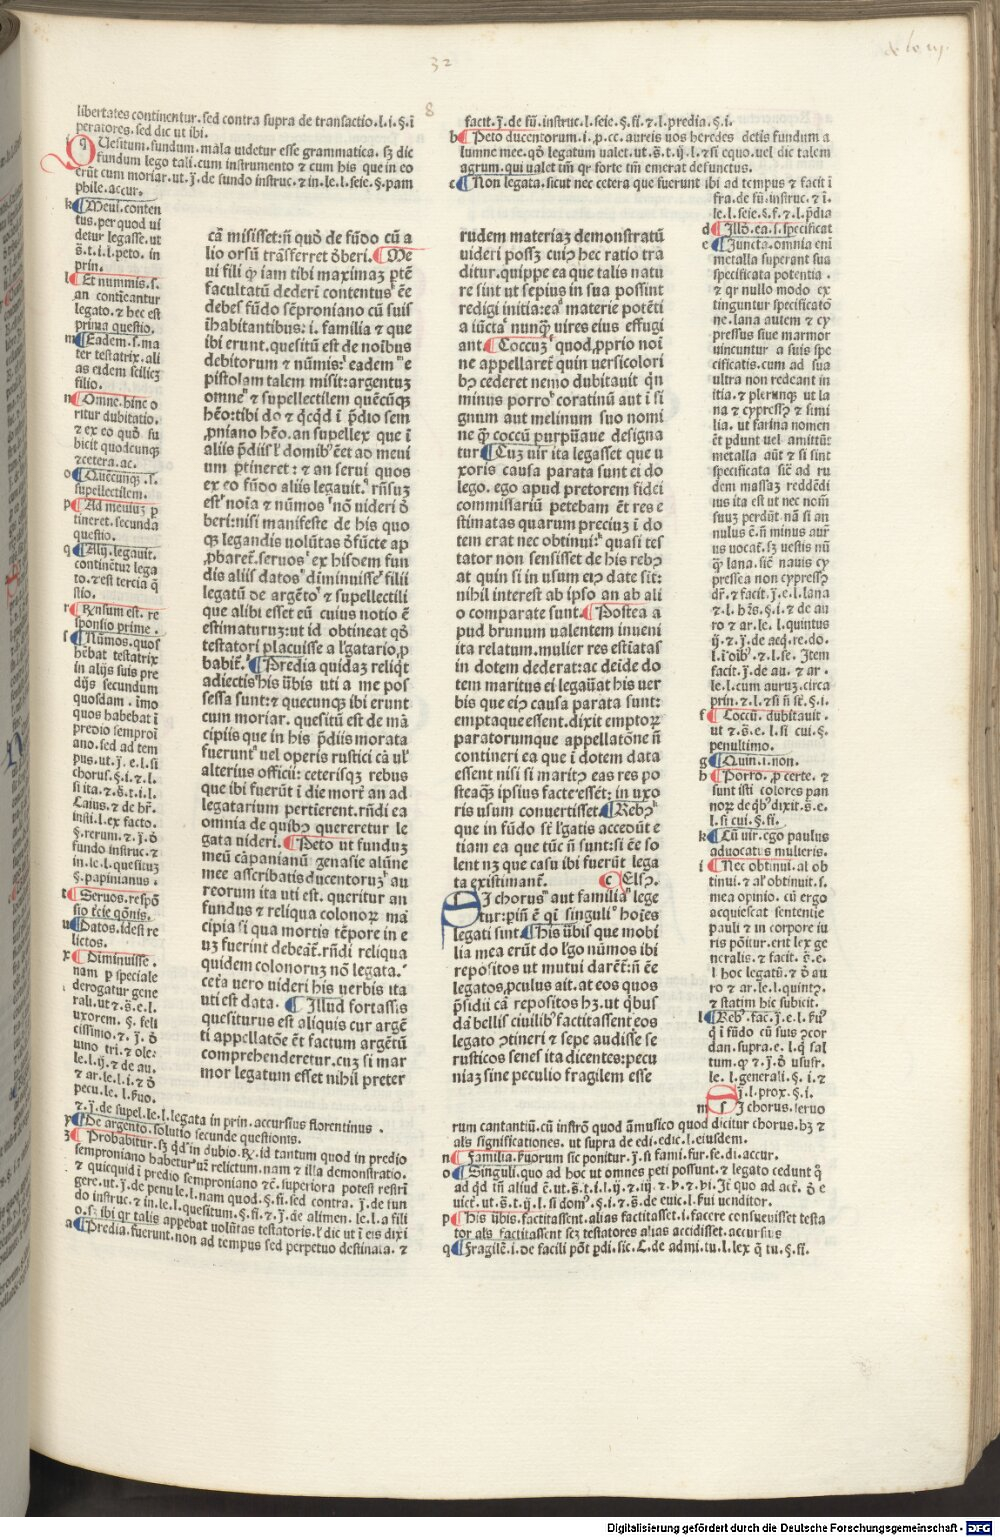 32
de le. iij.
8
libertates continentur. sed contra supra de transactio. l. i. §. ī
peratores. sed dic ut ibi.
QUesitum. fundum. mala uidetur esse grammatica. sꝫ dic
fundum lego tali. cum instrumento ⁊ cum his que in eo
erūt cum moriar. ut. j̄. de fundo instruc. ⁊ in. le. l. seie. §. pam
phile. accur.
k Meui. conten
tus. per quod ui
detur legasse. ut
s̄. t. i. l. peto. in
prin.
l Et nummis. s.
an contīeantur
legato. ⁊ hec est
prima questio.
m Eadem. s. ma
ter testatrix. ali
as eidem scilicꝫ
filio.
n Omne. hinc o
ritur dubitatio.
⁊ ex eo quō su
bicit quodcunqꝫ
⁊cetera. ac.
o Quēcunqꝫ. s.
supellectilem.
p Ad meuiuꝫ p
tineret. secunda
questio.
q Alij. legauit.
continētur lega
to. ⁊ est tercia q̄
stio.
r Rn̄sum est. re
sponsio prime.
s Nūmos. quos
hēbat testatrix
in alijs suis pre
dijs secundum
quosdam. imo
quos habebat ī
predio semproī
ano. sed ad tem
pus. ut. j̄. e. l. si
chorus. §. i. ⁊. l.
si ita. ⁊. s̄. t. i. l.
Caius. ⁊ de hr̄.
insti. l. ex facto.
§. rerum. ⁊. j̄. ō
fundo instruc. ⁊
in. le. l. quesituꝫ
§. papinianus.
t Seruos. respō
sio t̄cie qōnis.
u Datos. idest re
lictos.
x Diminuisse.
nam p speciale
derogatur gene
rali. ut ⁊. s̄. e. l.
uxorem. §. feli
cissimo. ⁊. j̄. ō
uino tri. ⁊ ole.
le. l. ij. ⁊ de au.
⁊ ar. le. l. i. ⁊ ō
pecu. le. l. ẜuo.
⁊. j̄. de supel. le. l. legata in prin. accursius florentinus.
y De argento. solutio secunde questionis.
z Probabitur. sꝫ qd̄ in dubio. ℞. id tantum quod in predio
semproniano habetur ur̄ relictum. nam ⁊ illa demonstratio.
⁊ quicquid ī predio semproniano ⁊c̄. superiora potest restrī
gere. ut. j̄. de penu le. l. nam quod. §. fi. sed contra. j̄. de fun
do instruc. ⁊ in. le. l. quesitum. §. fi. ⁊. j̄. de alimen. le. l. a fili
o. sꝫ ibi qr talis appebat volūtas testatoris. ł dic ut ī eis dixi
a Predia. fuerunt. non ad tempus sed perpetuo destinata. ⁊
cā misisset: n̄ quō de fūdo cū a
lio orsū trāsferret ōberi. Me
ui fili qꝫ iam tibi maximaꝫ ptē
facultatū dederī contentus ēe
debes fūdo sēproniano cū suis
īhabitantibus: i. familia ⁊ que
ibi erunt. quesitū est de noībus
debitorum ⁊ nūmis: eadem e
pistolam talem misit: argentuꝫ
omne ⁊ supellectilem quēcūqꝫ
hēo: tibi do ⁊ qcqd ī p̄dio sem
ꝓniano hēo. an supellex que ī
aliis p̄diis ł domibꝰ ēet ad meui
um ptineret: ⁊ an serui quos
ex eo fūdo aliis legauit. rn̄suꝫ
est noīa ⁊ nūmos nō uideri ō
beri: nisi manifeste de his quo
qꝫ legandis volūtas ōfūcte ap
ꝓbaret. seruos ex hisdem fun
dis aliis datos dīminuisse filii
legatū de argēto ⁊ supellectili
que alibi esset eū cuius notio ē
estimaturuꝫ: ut id obtineat qō
testatori placuisse a łgatario, ꝓ
babit̄. Predia quidaꝫ reliqt
adiectis his ūbis uti a me pos
sessa sunt: ⁊ quecunqꝫ ibi erunt
cum moriar. quesitū est de mā
cipiis que in his p̄diis morata
fuerunt uel operis rustici cā uł
alterius officii: ceterisqꝫ rebus
que ibi fuerūt ī die mort̄ an ad
legatarium pertīerent. rn̄di ea
omnia de quibꝯ quereretur le
gata uideri. Peto ut funduꝫ
meū cāpanianū genasie alūne
mee ascribatis ducentoruꝫ au
reorum ita uti est. queritur an
fundus ⁊ reliqua colonoꝝ mā
cipia si qua mortis tēpore in e
uꝫ fuerint debeāt. rn̄di reliqua
quidem colonoruꝫ nō legata.
cet̄a uero uideri his uerbis ita
uti est data. Illud fortassis
quesiturus est aliquis cur argē
ti appellatōe ēt factum argētū
comprehenderetur. cuꝫ si mar
mor legatum esset nihil preter
rudem materiaꝫ demonstratū
uideri possꝫ cuiꝯ hec ratio tra
ditur. quippe ea que talis natu
re sint ut sepius in sua possint
redigi initia: ea materie potēti
a iūcta nunqꝫ uires eius effugi
ant. Coccuꝫ quod, ꝓprio noī
ne appellaret̄ quin uersicolori
bꝯ cederet nemo dubitauit qn̄
minus porro coratinū aut ī si
gnum aut melinum suo nomi
ne qꝫ coccū purpūaue designa
tur. Cuꝫ uir ita legasset que u
xoris causa parata sunt ei do
lego. ego apud pretorem fidei
commissariū petebam ēt res e
stimatas quarum preciuꝫ ī do
tem erat nec obtinui: quasi tes
tator non sensisset de his rebꝯ
at quin si in usum eiꝯ date sīt:
nihil interest ab ipso an ab ali
o comparate sunt. Postea a
pud brunum ualentem inueni
ita relatum. mulier res estiatas
in dotem dederat: ac deīde do
tem maritus ei legaūat his uer
bis que eiꝯ causa parata sunt:
emptaque essent. dixit emptoꝝ
paratorumque appellatōne n̄
contineri ea que ī dotem data
essent nisi si maritꝯ eas res po
steaqꝫ ipsius facte essēt: in uxo
ris usum conuertisset. Rebꝯ
que in fūdo st̄ łgatis accedūt e
tiam ea que tūc n̄ sunt: si ēe so
lent nꝫ que casu ibi fuerūt lega
ta existimant̄. c Elsꝯ.
SI chorus aut familia lege
tur: pīn ē q̄ singuli hoīes
legati sunt. His ūbis que mobi
lia mea erūt do łgo nūmos ibi
repositos ut mutui darēt̄: n̄ ēe
legatos, ꝓculus ait. at eos quos
p̄sidii cā repositos hꝫ. ut qbus
dā bellis ciuilibꝰ factitassent eos
legato ꝯtineri ⁊ sepe audisse se
rusticos senes ita dicentes: pecu
niaꝫ sine peculio fragilem esse
facit. j̄. de fū. instruc. l. seie. §. fi. ⁊. l. predia. §. i.
b Peto ducentorum. i. ꝓ. cc. aureis uos heredes detis fundum a
lumne mee. qō legatum ualet. ut. s̄. t. ij. l. ⁊ si equo. uel dic talem
agrum. qui ualet tm̄ qr forte tm̄ emerat defunctus.
c Non legata. sicut nec cetera que fuerunt ibi ad tempus ⁊ facit ī
fra. de fū. instruc. ⁊ ī.
le. l. seie. §. f. ⁊. l. p̄dia
d Illō. ea. s. specificat
e Iuncta. omnia eni
metalla superant sua
specificata potentia.
⁊ qr nullo modo ex
tinguntur specificatō
ne. lana autem ⁊ cy
pressus siue marmor
uincuntur a suis spe
cificatis. cum ad sua
ultra non redeant in
itia. ⁊ plerunqꝫ ut la
na ⁊ cypressꝯ ⁊ simi
lia. ut farina nomen
ēt pdunt uel amittū:
metalla aūt ⁊ si sint
specificata sic̄ ad ru
dem massaꝫ reddēdi
ius ita est ut nec nom̄
suuꝫ perdūt. nā si an
nulus ē. n̄ minus aur
us uocat̄. sꝫ uestis nū
qꝫ lana. sic̄ nauis cy
pressea non cypressꝯ
dr̄. ⁊ facit. j̄. e. l. lana
⁊. l. hꝰs. §. i. ⁊ de au
ro ⁊ ar. le. l. quintus
ij. ⁊. j̄. de acq. re. do.
l. ī oībꝰ. ⁊. l. se. Item
facit. j̄. de au. ⁊ ar.
le. l. cum auruꝫ. circa
prin. ⁊. l. ⁊ si n̄ st̄. §. i.
f Coccū. dubitauit.
ut ⁊. s̄. e. l. si cui. §.
penultimo.
g Quin. i. non.
h Porro. ꝓ certe. ⁊
sunt isti colores pan
noꝝ de qbꝰ dixit. s̄. e.
l. si cui. §. fi.
k Cū uir. ego paulus
aduocatus mulieris.
i Nec obtinui. al ob
tinui. ⁊ al obtinuit. s.
mea opinio. cū ergo
acquiescat sententie
pauli ⁊ in corpore iu
ris pōitur. erit lex ge
neralis. ⁊ facit. s̄. e.
l. hoc legatū. ⁊ ō au
ro ⁊ ar. le. l. quintꝯ.
⁊ statim hic subicit.
l Rebꝰ. fac. j̄. e. l. fūꝰ
q̄ ī fūdo cū suis ꝯcor
dan. supra. e. l. q̄ sal
tum. q̄ ⁊. j̄. ō ususfr.
le. l. generali. §. i. ⁊
j̄. l. prox. §. i.
m SI chorus. seruo
rum cantantiū. cū instrō quod āmusico quod dicitur chorus. hꝫ ⁊
als significationes. ut supra de edi. edic. l. eiusdem.
n Familia. ẜuorum sic ponitur. j̄. si fami. fur. fe. di. accur.
o Singuli. quo ad hoc ut omnes peti possunt. ⁊ legato cedunt q̄
ad qd̄ tm̄ aliud ē. ut. s̄. t. i. l. ij. ⁊. iij ⁊. v. ⁊. vi. It̄ quo ad act̄. ō e
uict̄. ut. s̄. t. ij. l. si domꝰ. §. i. ⁊. s̄. de euic. l. fui uenditor.
p His ūbis. factitassent. alias factitasset. i. facere consueuisset testa
tor als factitassent scꝫ testatores alias accidisset. accursius
q Fragilē. i. de facili pōt pdi. sic. C. de admi. tu. l. lex q̄ tu. §. fi.
Digitalisierung gefördert durch die Deutsche Forschungsgemeinschaft - DFG